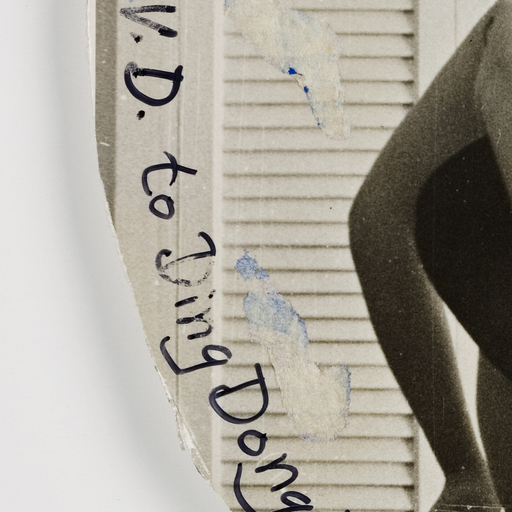 V.D. to Ding Dong